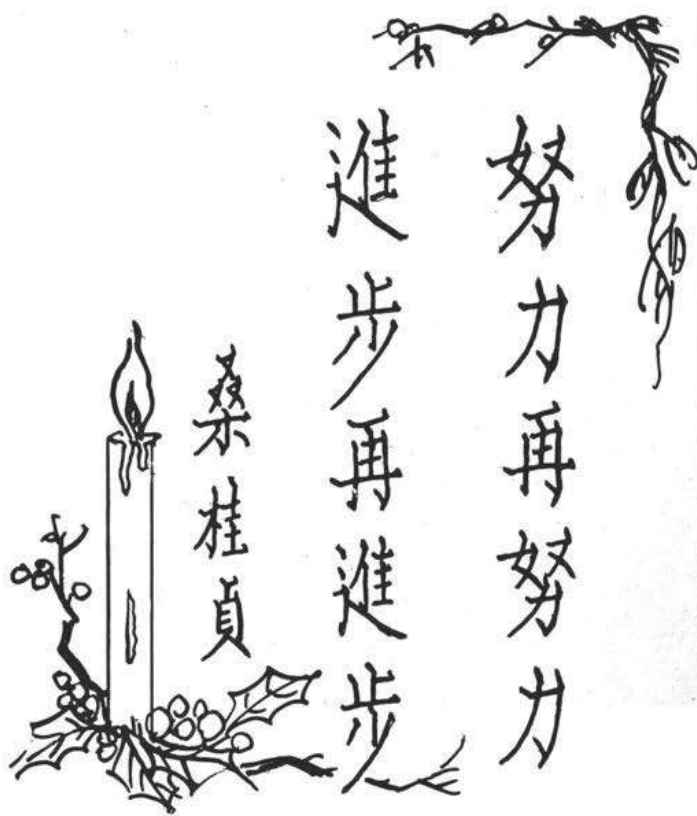 努力再努力
進步再進步
桑桂貞